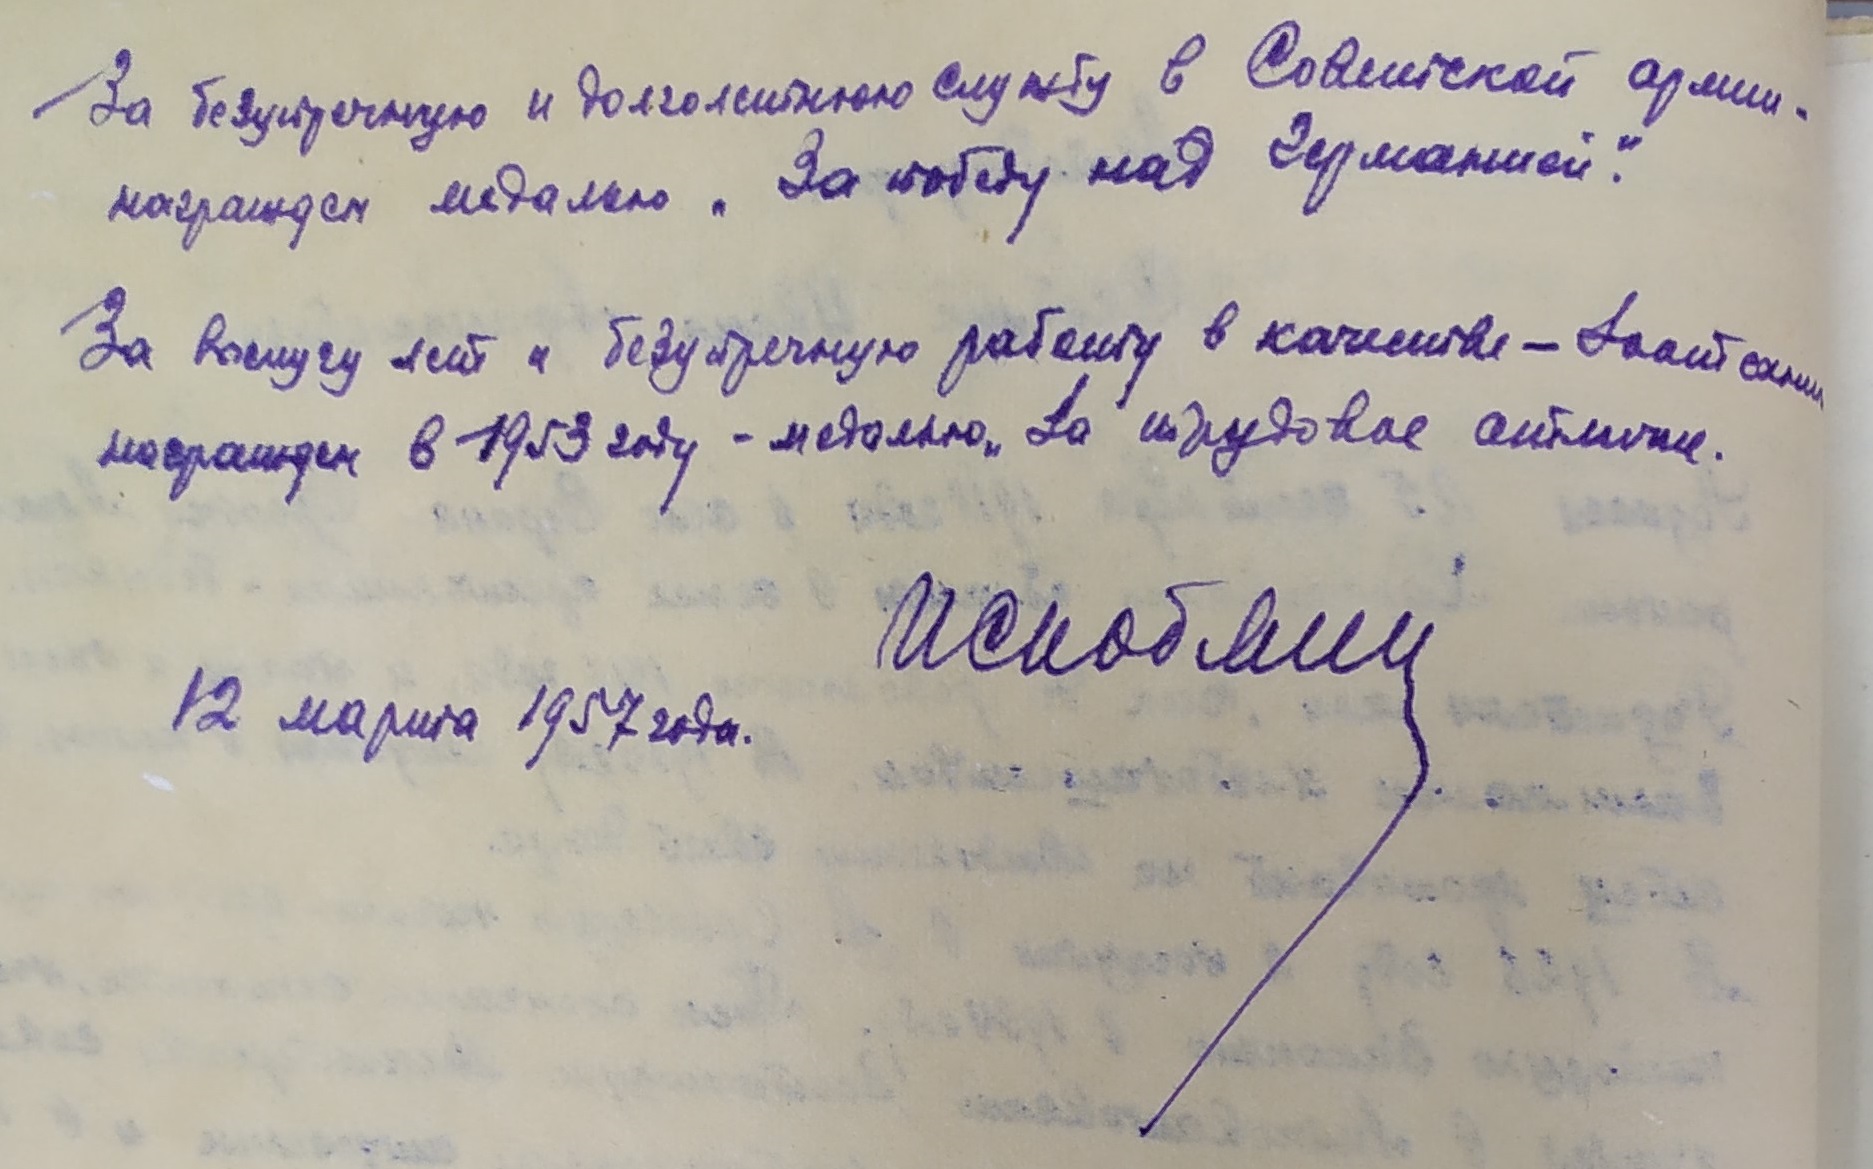 За безупречную и долголетнюю службу в Советской армии.
награжден медалью „За победу над Германией".
За выслугу лет и безупречную работу в качестве –
награжден в 1953 году - медалью „За трудовое отличие.
12 марта 1957 года.